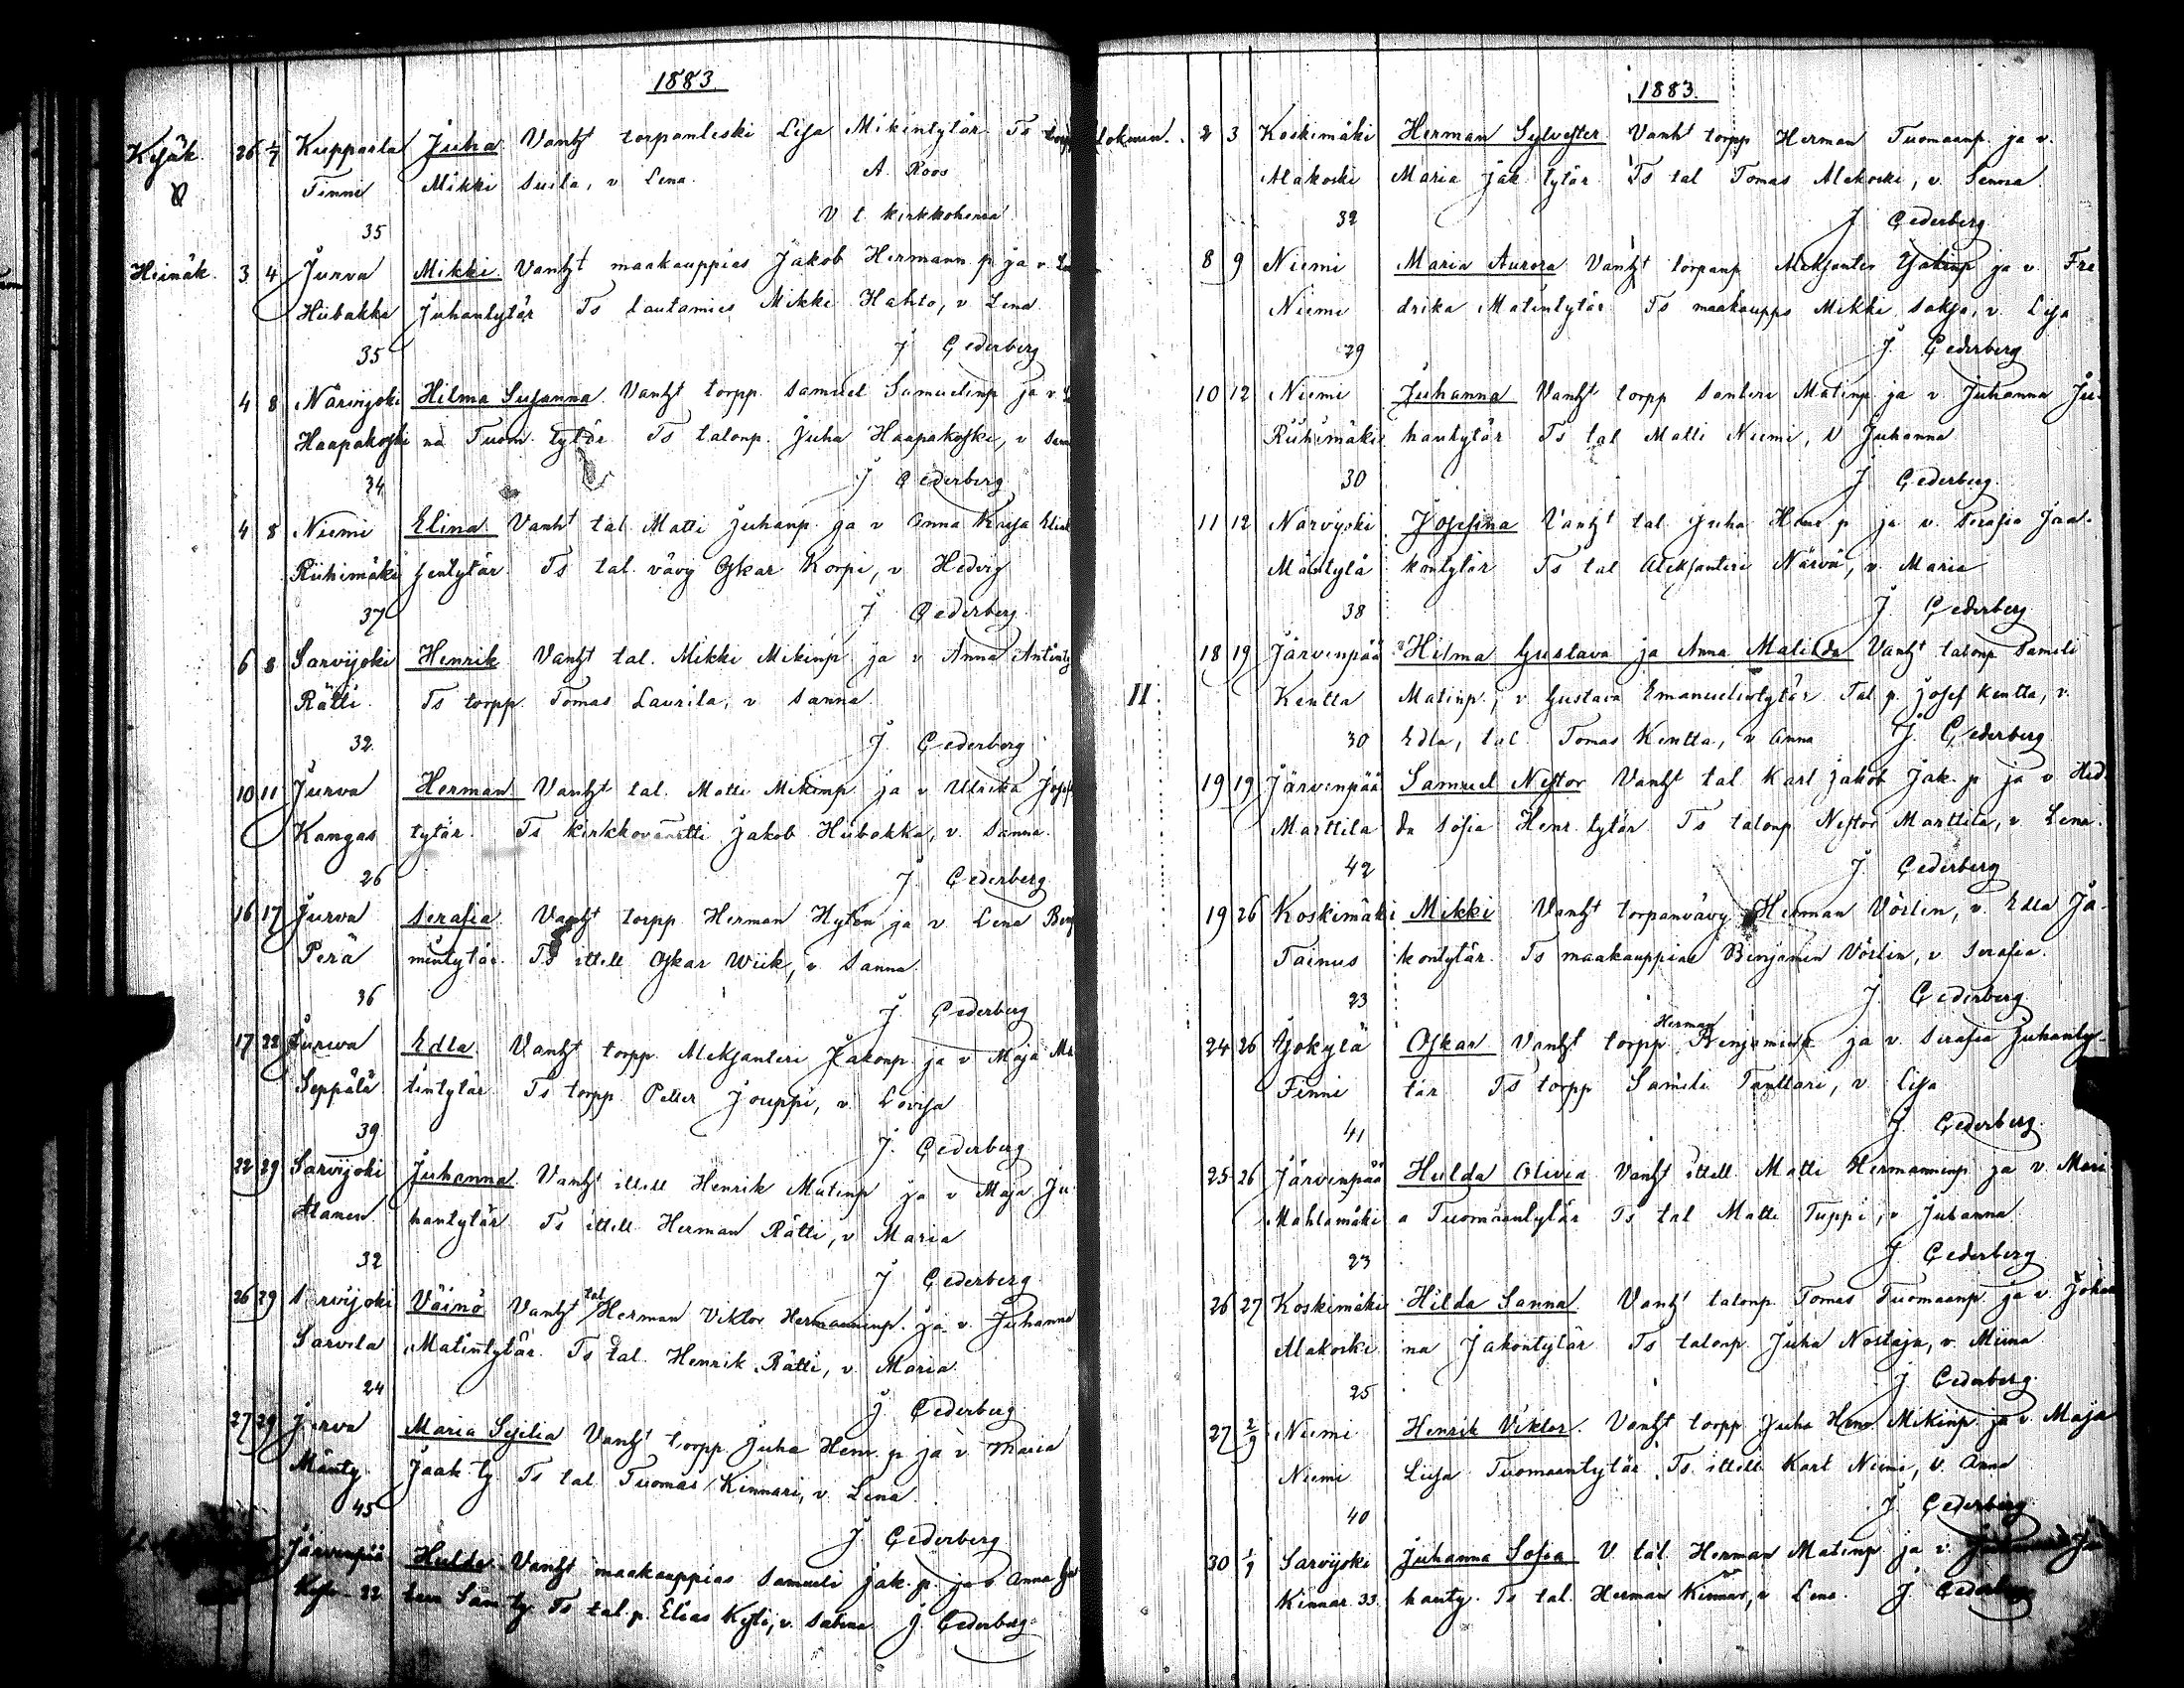 1883.
Kesäk. 26 1/7 Kuppaala Juha Vanht torpanleski Lisa Mikintytär Ts torp
Finni Mikki Suila, v Lena. A. Roos
35 V. t. kirkkoherra
Heinäk. 3 4 Jurva Mikki. Vanht maakauppias Jakob Hermann.p. ja v.
Hiibakka Juhantytär Ts lautamies Mikki Hahto, v Lena
35 J Cederberg
4 8 Närvijoki Hilma Susanna. Vanht torpp. Samuel Samuelinp ja v.
Haapakoski na Tuom. tytär Ts talonp. Juha Haapakoski, v
34 J Cederberg
4 8 Niemi Elina. Vanht tal. Matti Juhanp. ja v Anna Kaisa
Riihimäki tytär. Ts tal. vävy Oskar Korpi, v Hedvig
37 J Cederberg
6 8 Sarvijoki Henrik Vanht tal. Mikki Mikinp ja v Anna
Rätti. Ts torpp. Tomas Laurila, v Sanna.
32. J. Cederberg
10 11 Jurva Herman Vanht tal. Matti Mikinp ja v Ulrika Josef
Kangas tytär. Ts kirkkoväärtti Jakob Hiibakka, v. Sanna.
26 J. Cederberg
16 17 Jurva Serafia Vanht torpp Herman Hytön ja v Lena Benj
Perä mintytär. Ts ittell Oskar Wiik, v Sanna.
36 J Cederberg
17 22 Jurva Edla. Vanht torpp. Aleksanteri Jakonp. ja v Maja Ma
Seppälä tintytär Ts torpp. Petter Jouppi, v Lovisa
39 J. Cederberg
22 29 Sarvijoki Juhanna. Vanht ittell Henrik Matinp ja v Maja Ju
Alanen hantytär Ts ittell Herman Rätti, v Maria
32 J Cederberg
26 29 Sarvijoki Väinö Vanht tal Herman Viktor Hermanninp. ja v. Juhanna
Sarvela Matintytär. Ts tal. Henrik Rätti, v. Maria.
24 J Cederberg
27 29 Jurva Maria Sesilia Vanht torpp. Juha Henr. p ja v Maria
Mänty Jaak. ty Ts tal. Tuomas Kinnari, v. Lena.
45 J Cederberg
Järvenpää Hulda. Vanht maakauppias Samueli Jak. p. ja v Anna
22 Sam. ty. Ts tal. p. Elias Kyti, v. Sabina. J. Cederberg
1883.
Elokuun. 2 3 Koskimäki Herman Sylvester Vanht torpp Herman Tuomaanp. ja v.
Alakoski Maria Jak. tytär Ts tal Tomas Alakoski, v. Senna
32 J Cederberg
8 9 Niemi Maria Aurora Vanht torpanp Aleksanter Jakinp ja v. Fre
Niemi drika Matintytär Ts maakaupps Mikki Saksa, v. Lisa
29 J. Cederberg
10 12 Niemi Juhanna Vanht torpp Santeri Matinp ja v Juhanna Ju-
Riihimäki hantytär Ts tal Matti Niemi, v Juhanna
30 J Cederberg
11 12 Närvijoki Josefina Vanht tal. Juha Henr p ja v. Serafia Jaa-
Mäntylä kontytär Ts tal Aleksanteri Närvä, v. Maria
38 J. Cederberg
18 19 Järvenpää Hilma Gustava ja Anna Matilda Vanht talonp Sameli
II Kentta Matinp., v Gustava Emanuelintytär Tal. p. Josef Kentta, v.
30 Edla, tal. Tomas Kentta, v Anna J. Cederberg
19 19 Järvenpää Samuel Nestor Vanht tal Karl Jakob Jak. p ja v Hed-
Marttila da Sofia Henr. tytär Ts talonp Nestor Marttila, v. Lena.
42 J Cederberg
19 26 Koskimäki Mikki Vanht torpanvävy Herman Vörlin, v. Edla Ja-
Tainus kontytär. Ts maakauppias Benjamin Vörlin, v Serafia.
23 J Cederberg
24 26 Yökylä Oskar Vanht torpp Herman Benjaminp ja v. Serafia Juhanty-
Finni tär Ts torpp Sameli Tanttari, v Lisa
41 J Cederberg
25 26 Järvenpää Hulda Olivia Vanht ittell. Matti Hermanninp ja v. Mari
Mahlamäki a Tuomaantytär Ts tal Matti Tuppi, v Juhanna.
23 J Cederberg
26 27 Koskimäki Hilda Sanna Vanht talonp. Tomas Tuomaanp. ja v. Johan
Alakoski na Jakontytär Ts talonp Juha Nostaja, v. Miina
25 J Cederberg
27 2/9 Niemi Henrik Viktor. Vanht torpp Juha Henr Mikinp ja v. Maja
Niemi Liisa Tuomaantytär. Ts ittell Karl Niemi, v. Anna
40 J. Cederberg
30 1/9 Sarvijoki Juhanna Sofia V. tal. Herman Matinp ja v.
Kinnar. 33. hanty. Ts tal. Herman Kinnar, v Lena. J Cederberg